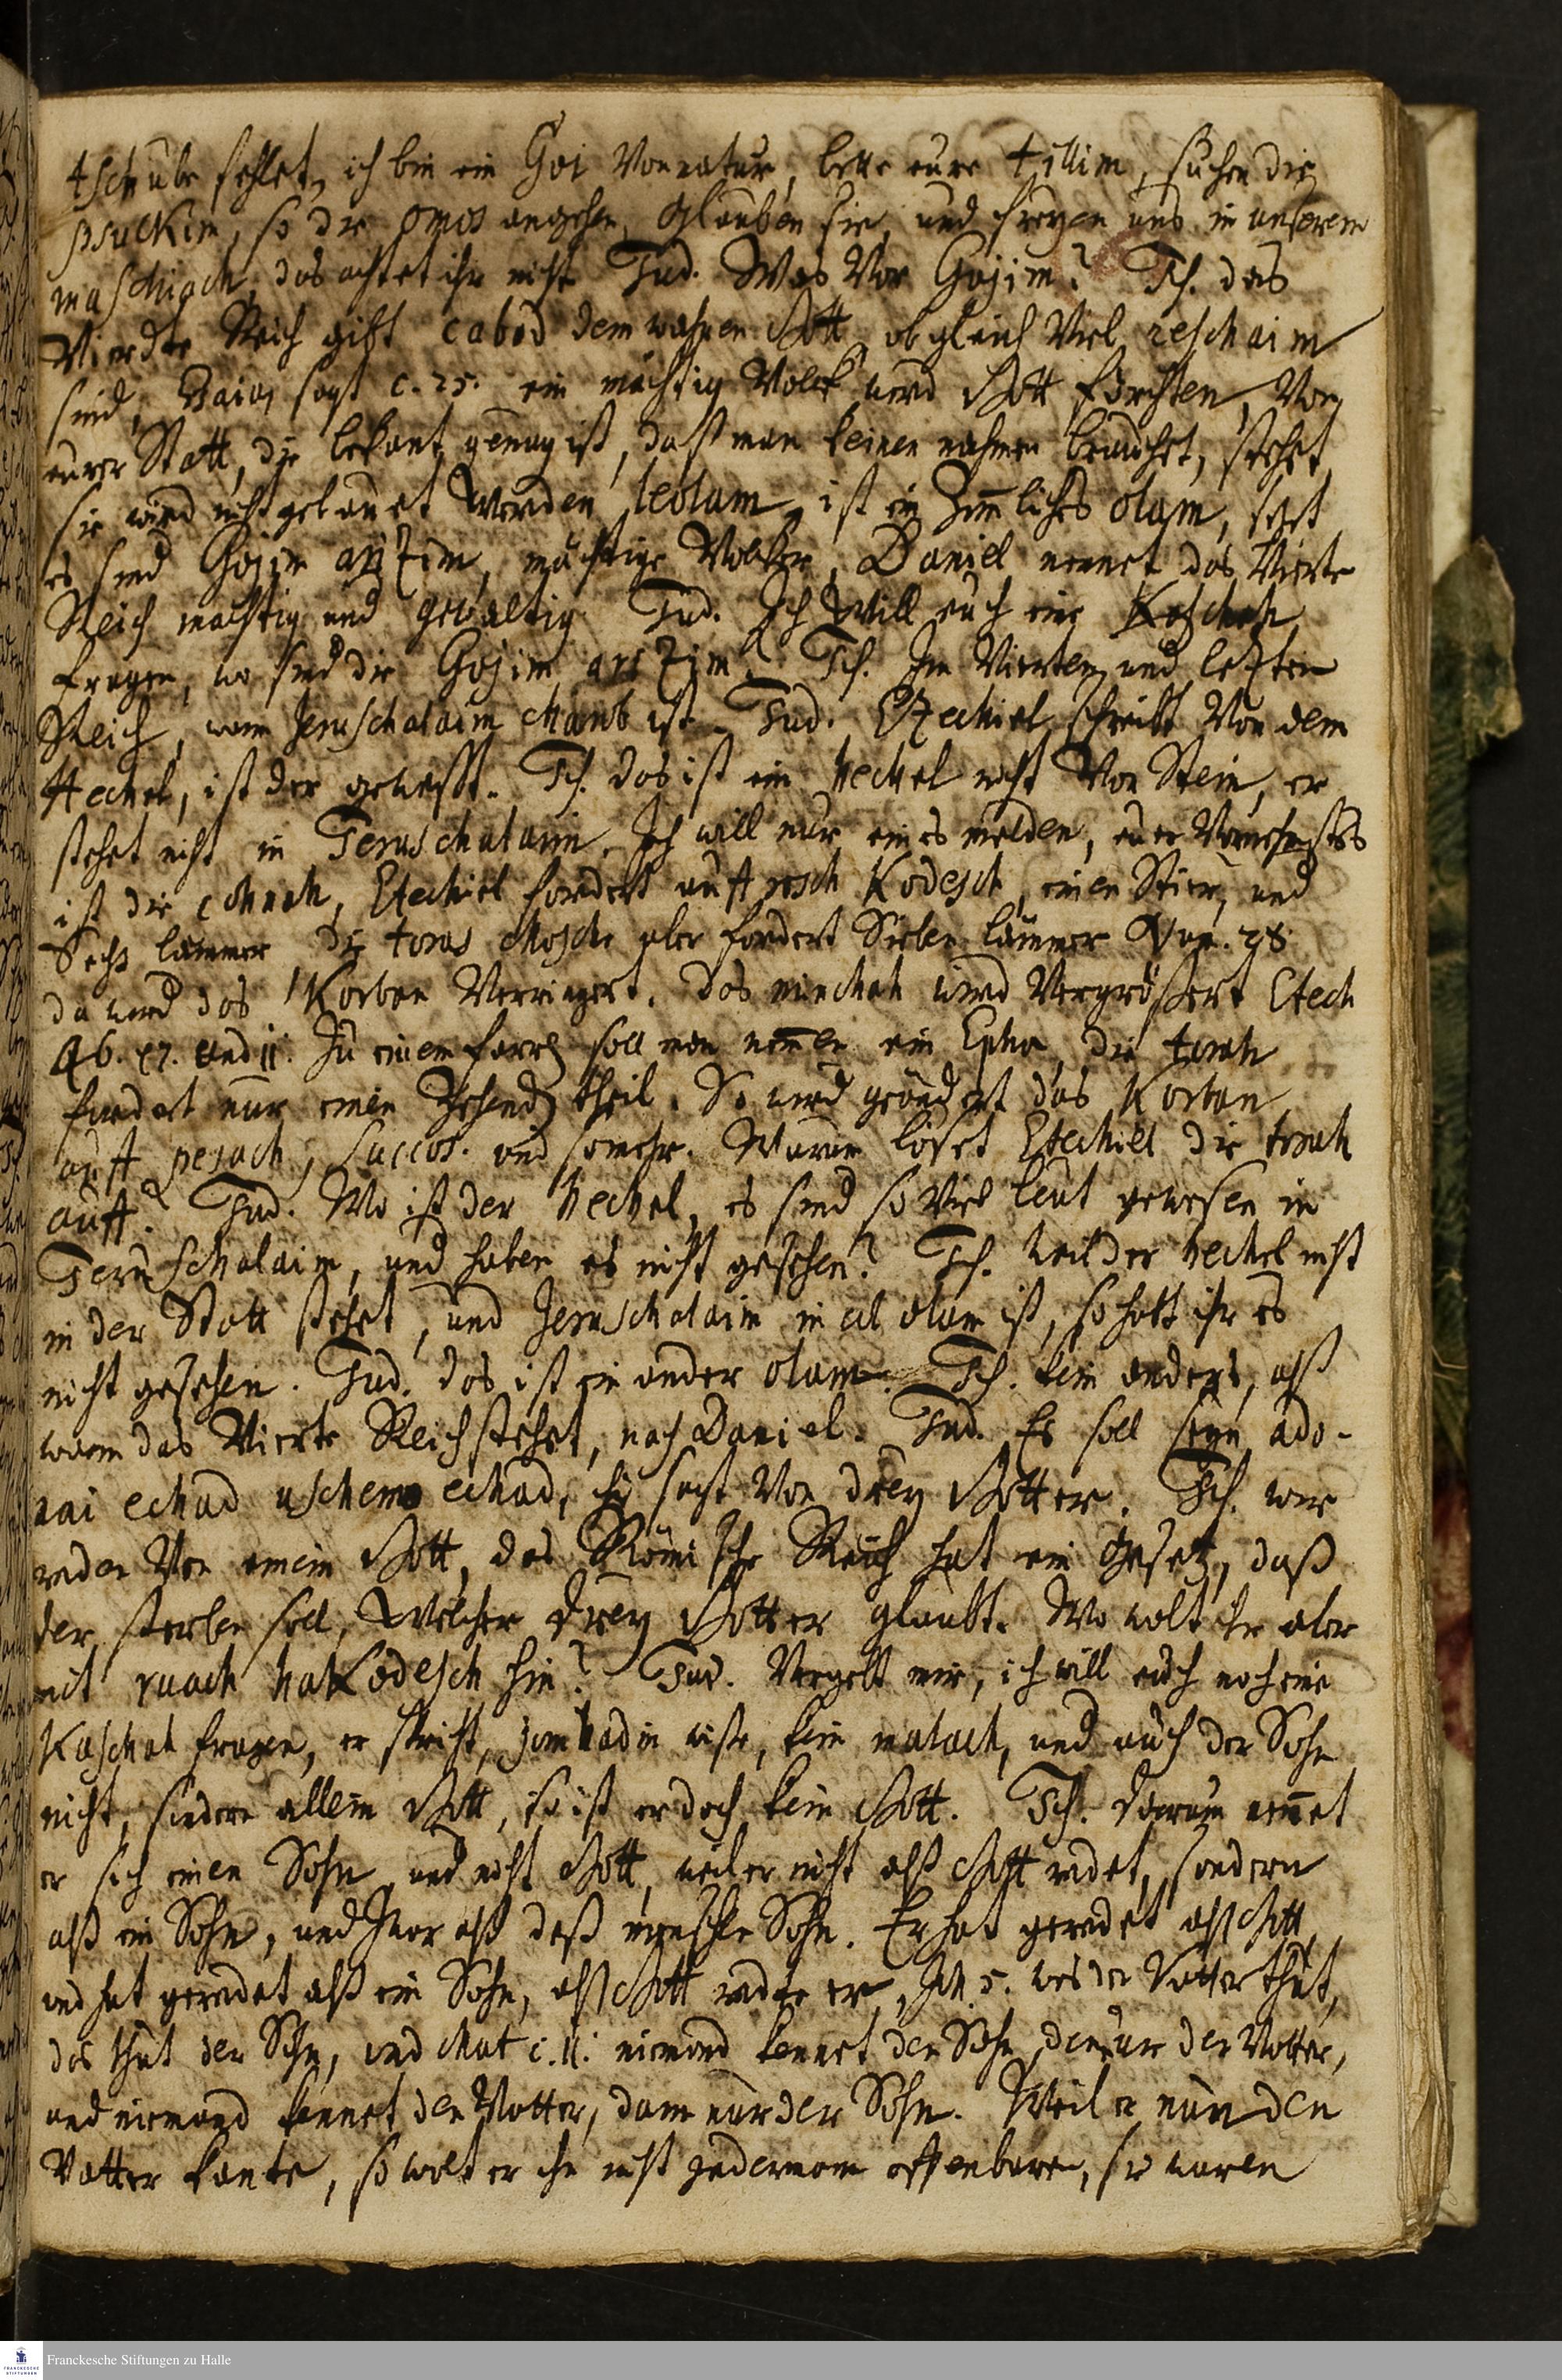 tschube fehlet, ich bin ein Goi von natur, bette eure tillim, suchen die
psuckim, so die omos angehen, glauben sie, und freyen uns in unserem
maschiach, das achtet ihr nicht Jud. Was vor Gojim? Ich. das
Vierdte Reich gibt cabod dem wahren Gott, obgleich viel reschaim
sind, Jsaias sagt c. 25. ein mächtig Volck wird Gott förchten, Von
eurer Statt, die bekant genug ist, daß man keinen nahmen brauchet, stehet
sie wird nicht gebauet werden leolam, ist ein zimliches olam, sehet
es sind Gojim arizim, mächtige Volker, Daniel nennet das Vierte
Reich mächtig und gewaltig. Jud. Ich will euch eine Kaschah
fragen, wo sind die Gojim arizim? Ich. Im Vierten und letzten
Reich, wann Jeruschalaim charub ist. Jud. Ezechiel schreibt Von dem
Hechel, ist der gewesst. Ich. das ist ein hechel nicht Von Stein, er
stehet nicht in Jeruschalaim. Ich will nur eines melden, euer Vornehmstes
ist die torah, Ezechiel fordert auff rosch Kodesch, einen Stier, und
Sechs lammer die toras Mosche aber fordert Sieben lämmer Num. 28.
da wird das Korban Verringert. das minchah wird Vergrößert Ezech
46. 17. und 11. Zu einem farren soll man nemen ein Epha, die torah
fordert nur einen Zehend theil. So wird geändert das Korban
auff pesach, succos. und somehr. Warum löset Ezechiel die torah
auff? Jud. Wo ist der hechel, es sind so viel leut gewesen in
Jeruschalaim, und haben es nicht gesehen? Ich. weil der hechel nicht
in der Statt stehet, und Jeruschalaim in al olam ist, so hatt ihr es
nicht gesehen. Jud. das ist ein ander olam. Ich. kein anders, alß
wann das Vierte Reich stehet, nach Daniel. Jud. Es soll seyn ado-
nai echad uschemo echad, ihr sagt Von drey Götter. Ich. wir
reden Von einem Gott, das Römische Reich hat ein Gesetz, daß
der sterben soll, welcher drey Götter glaubt. Wo wolt ihr aber
mit ruach haKodesch hin? Jud. Vergebt mir, ich will euch noch eine
Kaschah fragen, er spricht, jom hadin wiße, kein malach, und auch der Sohn
nicht, sondern allein Gott, so ist er doch kein Gott. Ich. darum nennet
er sich einen Sohn und nicht Gott, weil er nicht alß Gott redet, sondern
alß ein Sohn, und zwar alß deß menschen Sohn. Er hat geredet alß Gott,
und hat geredet alß ein Sohn, alß Gott redte er, Joh. 5. was der Vatter thut,
das thut der Sohn, und Mat c. 11. niemand kennet den Sohn dannur der Vatter,
und niemand kennet den Vatter, dann nur der Sohn. Weil er nun den
Vatter kante, so wolt er ihn nicht jederman offenbaren, sie waren
Franckesche Stiftungen zu Halle